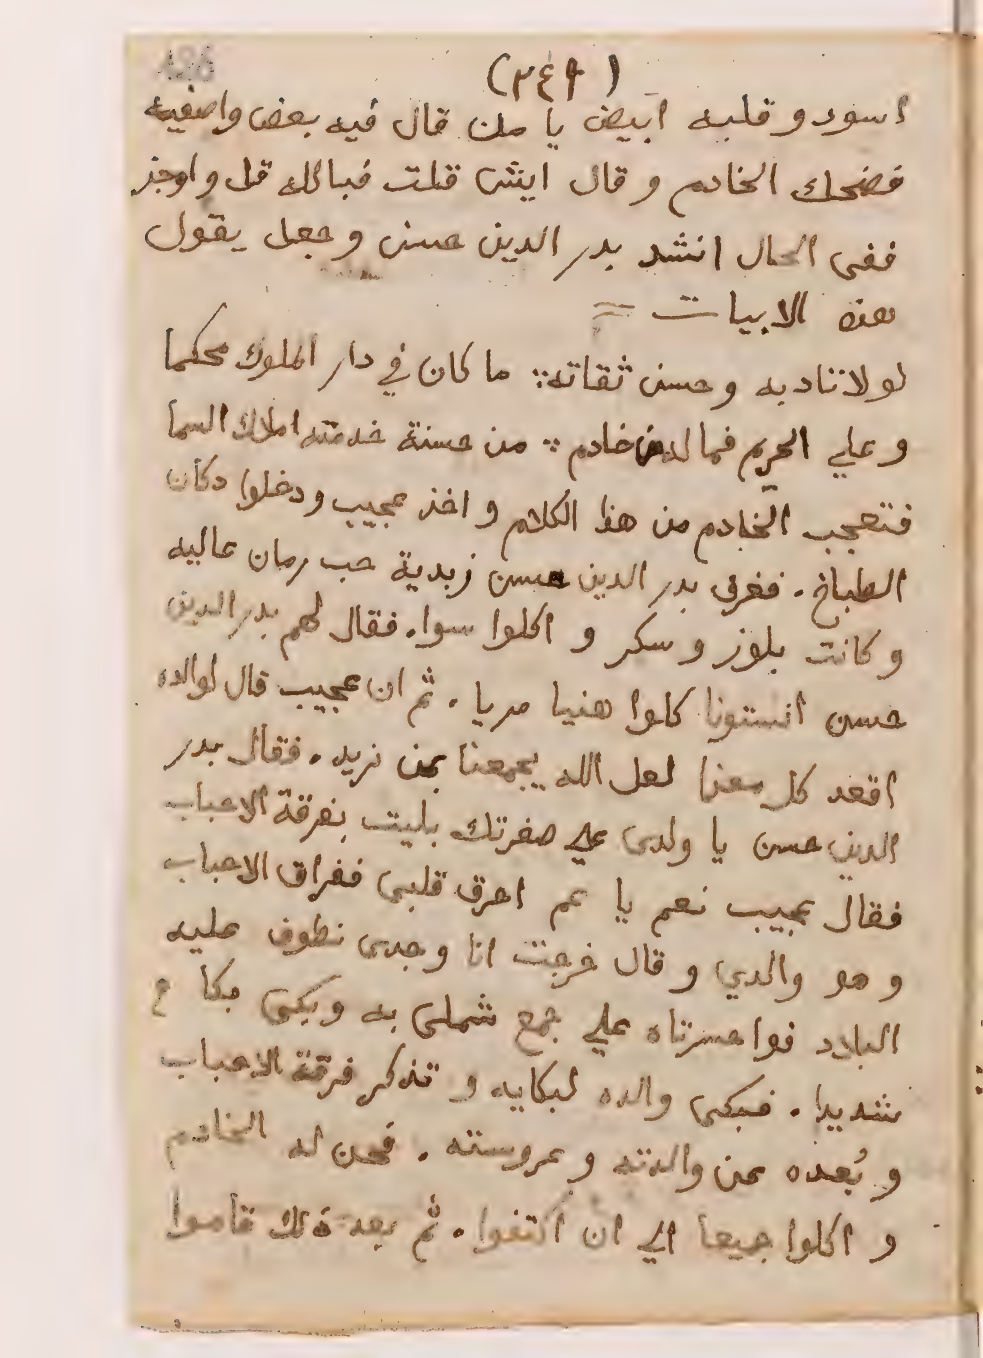 186
(٢٤٩)
اسود وقلبه ابيض يا من قال فيه بعض واصفيه
فضحك الخادم وقال ايش قلت فبالله قل واوجز
ففي الحال انشد بدر الدين حسن وجعل يقول
هذه الابيات
لولا تنادبه وحسن ثقاته ∴ ما كان في دار الملوك محكما
وعلي الحريم فيا له من خادم ∴ من حسنة خدمته املاك السما
فتعجب الخادم من هذا الكلام واخذ عجيب ودخلوا دكان
الطباخ . فغرف بدر الدين حسن زبدية حب رمان عاليه
وكانت بلوز وسكر و اكلوا سوا . فقال لهم بدر الدين
حسن انستونا كلوا هنيا مريا . ثم ان عجيب قال لوالده
اقعد كل معنا لعل الله يجمعنا بمن نريد . فقال بدر
الدين حسن يا ولدي علي صغرتك بليت بفرقة الاحباب
فقال عجيب نعم يا عم احرق قلبي ففراق الاحباب
و هو والدي و قال خرجت انا وجدي نطوف عليه
البلاد فوا حسرتاه علي جمع شملي به وبكي بكا
شديدا . فبكي والده لبكايه و تذكر فرقة الاحباب
و بُعده عن والدته و عروسته . فحن له الخادم
و اكلوا جميعا الي ان اكتفوا . ثم بعد ذلك قاموا